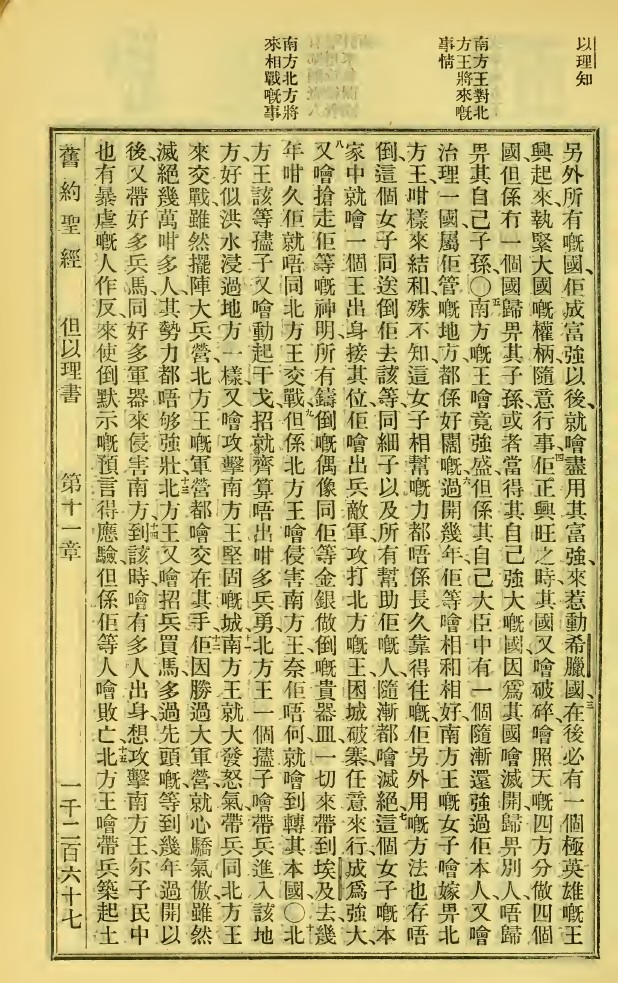 以理知
南方王對北
方王將來嘅
事情
南方北方將
來相戰嘅事
另外所有嘅國、佢成富強以後、就噲盡用其富強、來惹動希臘國、三在後必有一個極英雄嘅王
興起來、執緊大國嘅權柄、隨意行事、四佢正興旺之時、其國又噲破碎、噲照天嘅四方分做四個
國、但係冇一個國歸畀其子孫、或者當得其自己強大嘅國、因爲其國噲滅開歸畀別人、唔歸
畀其自己子孫、〇五南方嘅王噲竟強盛、但係其自己大臣中有一個隨漸還強過佢本人、又噲
治理一國、屬佢管嘅地方都係好闊嘅、六過開幾年、佢等噲相和相好、南方王嘅女子噲嫁畀北
方王、咁樣來結和、殊不知這女子相幫嘅力都唔係長久靠得住嘅、佢另外用嘅方法也存唔
倒、這個女子同送倒佢去該等、同細子以及所有幫助佢嘅人、隨漸都噲滅絕、七這個女子嘅本
家中就噲一個王出身接其位、佢噲出兵敵軍、攻打北方嘅王、困城破寨任意來行、成爲強大、
八又噲搶走佢等嘅神明、所有鑄倒嘅偶像、同佢等金銀做倒嘅貴器皿、一切來帶到埃及去、幾
年咁久佢就唔同北方王交戰、九但係北方王噲侵害南方王、奈佢唔何就噲到轉其本國、〇十北
方王該等孻子又噲動起干戈、招就齊算唔出咁多兵勇、北方王一個孻子噲帶兵進入該地
方、好似洪水浸過地方一樣、又噲攻擊南方王堅固嘅城、十一南方王就大發怒氣、帶兵同北方王
來交戰、雖然擺陣大兵營、北方王嘅軍營都噲交在其手、十二佢因勝過大軍營、就心驕氣傲、雖然
滅絕幾萬咁多人、其勢力都唔够強壯、十三北方王又噲招兵買馬、多過先頭嘅、等到幾年過開以
後、又帶好多兵馬、同好多軍器來侵害南方、十四到該時噲有多人出身、想攻擊南方王、尔子民中
也有暴虐嘅人作反、來使倒默示嘅預言得應驗、但係佢等人噲敗亡、十五北方王噲帶兵築起土
舊約聖經 但以理書 第十一章 一千二百六十七